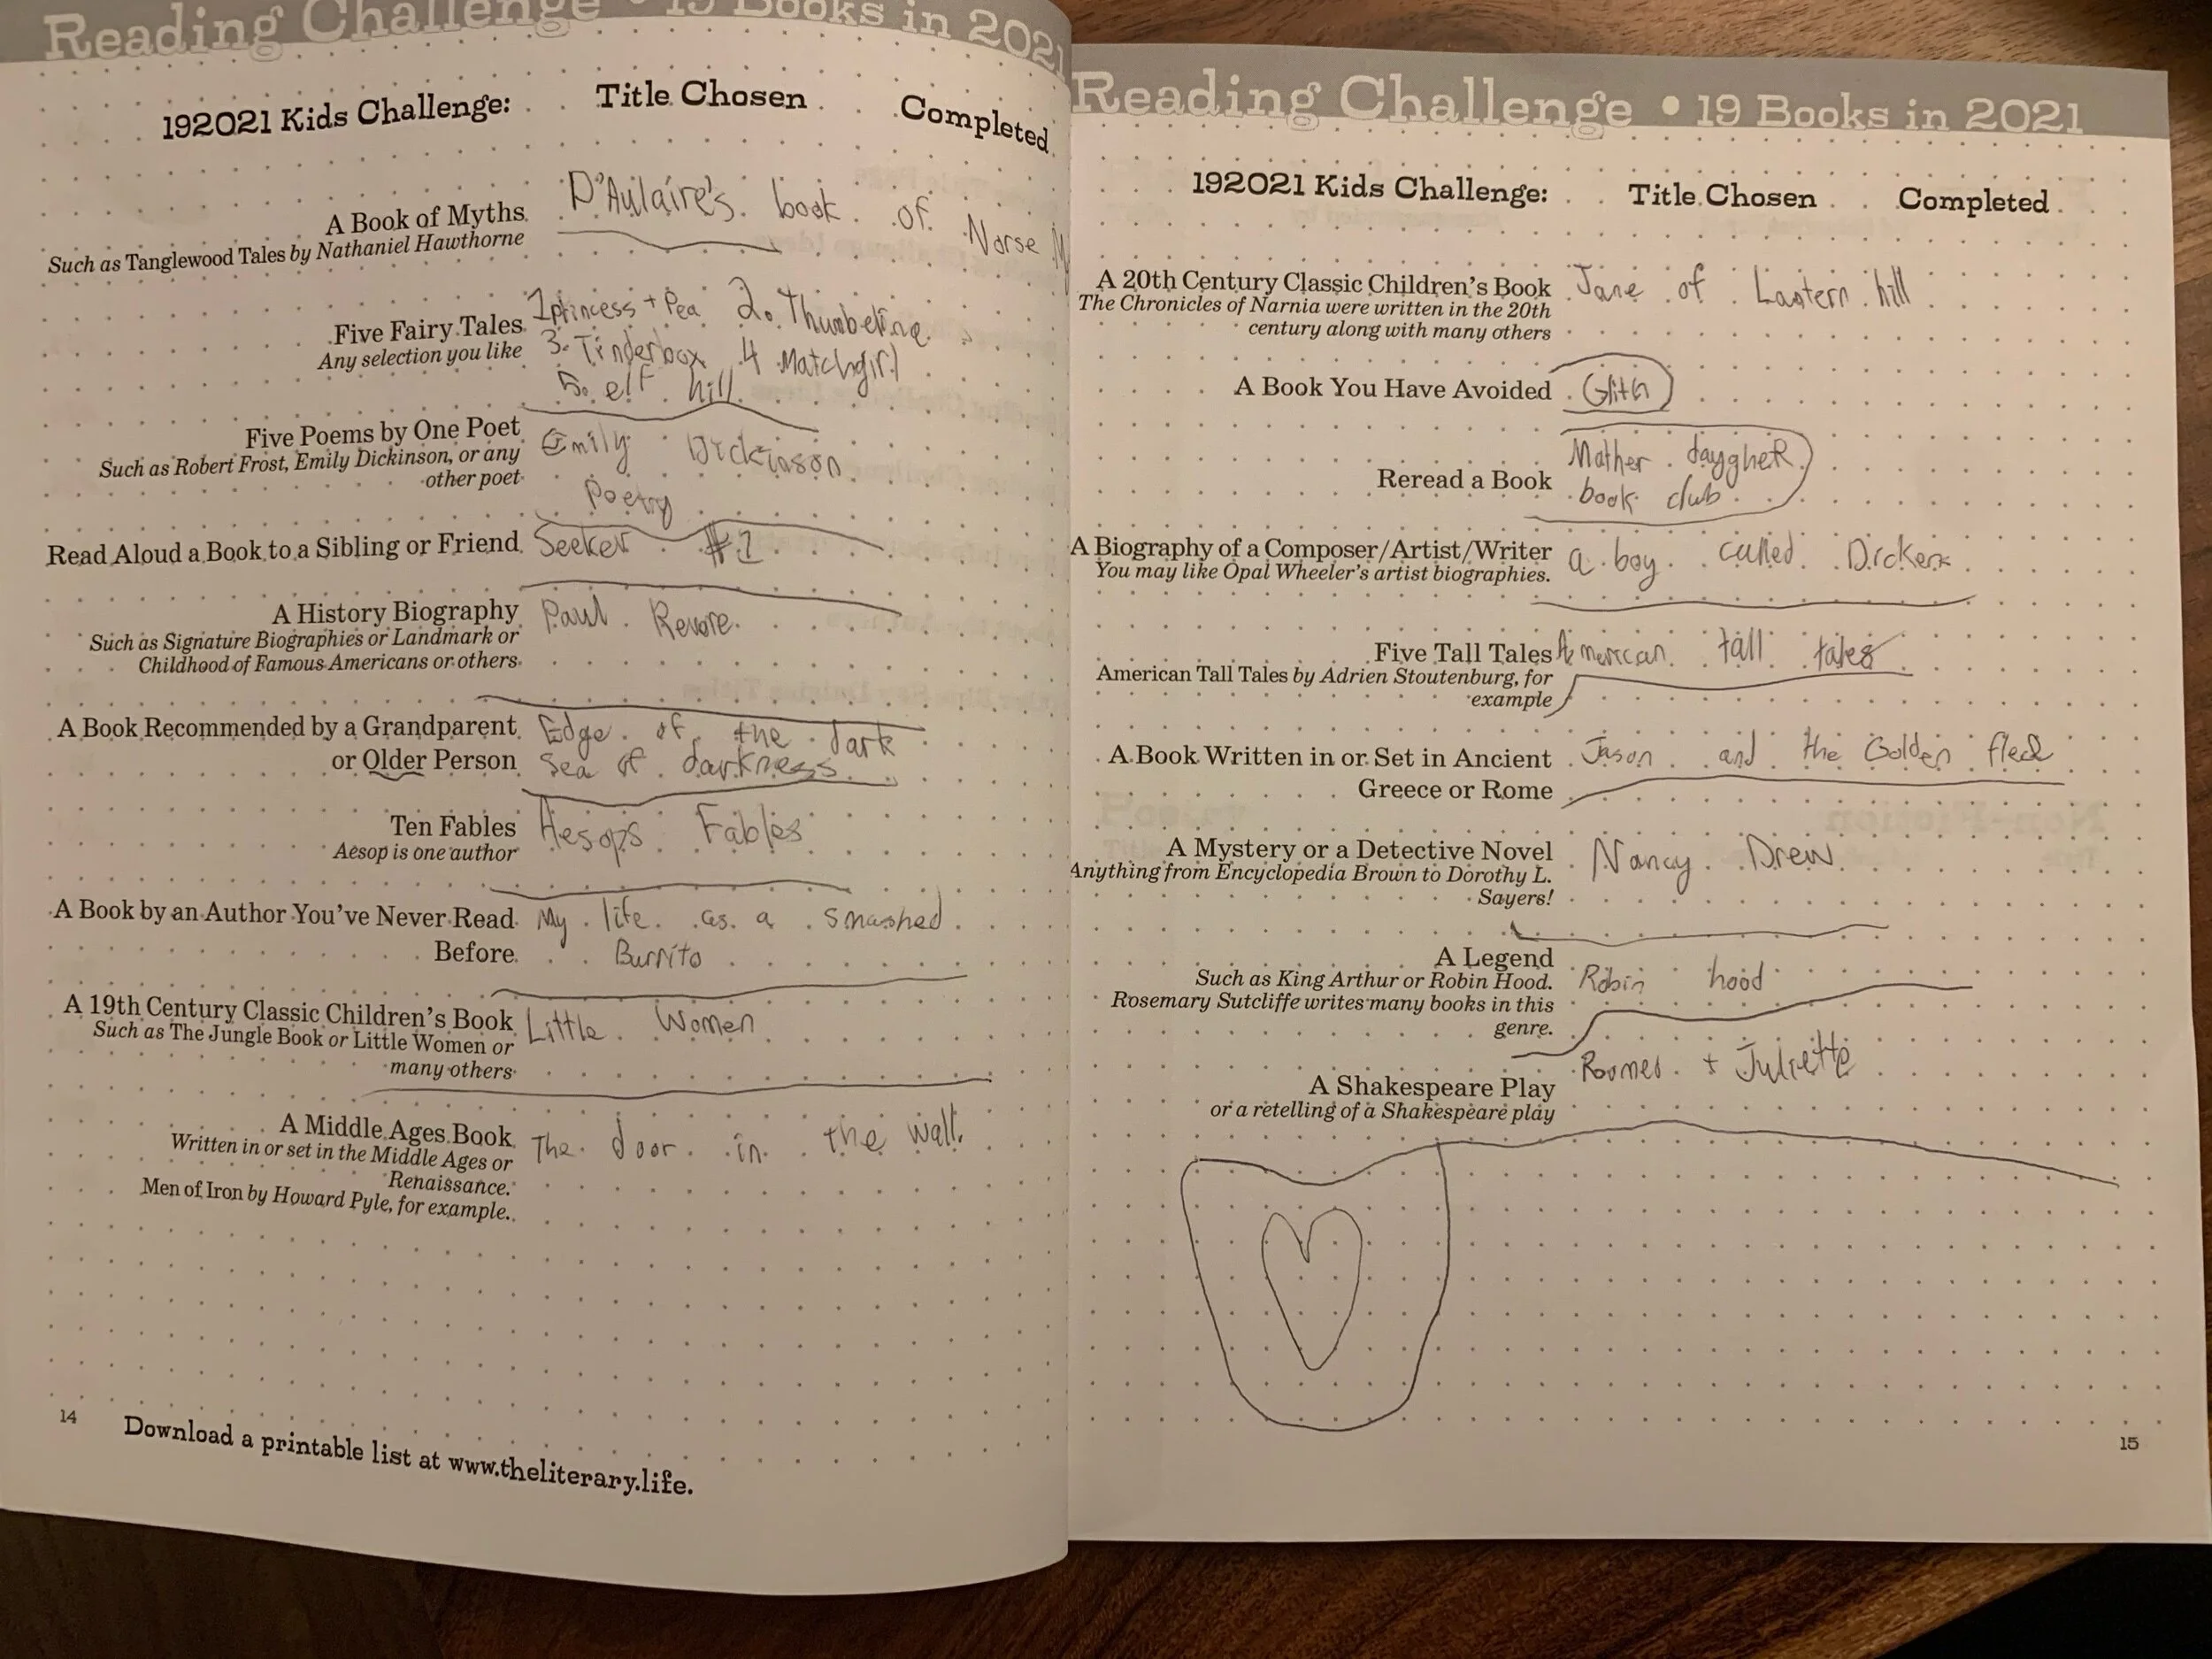 Reading Challenge • 19 Books in 2021
192021 Kids Challenge: Title Chosen Completed
A Book of Myths D'Aulaire's book of Norse
Such as Tanglewood Tales by Nathaniel Hawthorne
1 princess + Pea 2. Thumbeline
Five Fairy Tales
Any selection you like 3. Tinderbox 4 Matchgirl
5. elf hill
Five Poems by One Poet Emily Dickinson
Such as Robert Frost, Emily Dickinson, or any
other poet Poetry
Read Aloud a Book to a Sibling or Friend Seeker #1
A History Biography Paul Revore
Such as Signature Biographies or Landmark or
Childhood of Famous Americans or others
A Book Recommended by a Grandparent Edge of the dark
or Older Person Sea of darkness
Ten Fables Aesops Fables
Aesop is one author
A Book by an Author You've Never Read My life as a smashed
Before Burrito
A 19th Century Classic Children's Book Little Women
Such as The Jungle Book or Little Women or
many others
A Middle Ages Book The door in the wall.
Written in or set in the Middle Ages or
Renaissance.
Men of Iron by Howard Pyle, for example.
14 Download a printable list at www.theliterary.life.
Reading Challenge • 19 Books in 2021
192021 Kids Challenge: Title Chosen Completed
A 20th Century Classic Children's Book Jane of Lantern hill
The Chronicles of Narnia were written in the 20th
century along with many others
A Book You Have Avoided
Mother
Reread a Book
book club
A Biography of a Composer/Artist/Writer a boy called Dickens
You may like Opal Wheeler's artist biographies.
Five Tall Tales American tall tales
American Tall Tales by Adrien Stoutenburg, for
example
A Book Written in or Set in Ancient Jason and the Golden
Greece or Rome
A Mystery or a Detective Novel Nancy Drew
Anything from Encyclopedia Brown to Dorothy L.
Sayers!
A Legend
Such as King Arthur or Robin Hood. Robin hood
Rosemary Sutcliffe writes many books in this
genre.
Roomeo + Juliette
A Shakespeare Play
or a retelling of a Shakespeare play
15